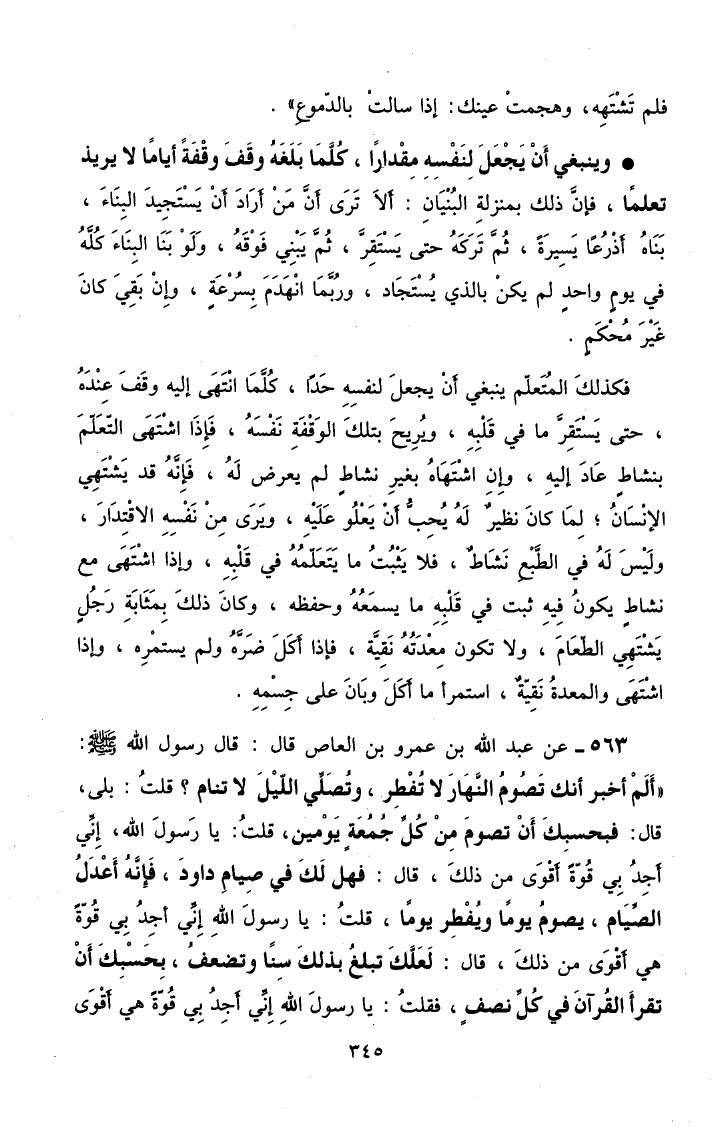 فلم تَشْتَهِه، وهجمتْ عينك: إذا سالتْ بالدّموعِ» .
● وينبغي أنْ يَجْعَلَ لنَفْسِهِ مِقْدارًا ، كُلَّمَا بَلَغَهُ وقَفَ وِقْفَةً أيامًا لا يريد
تعلمًا ، فإنَّ ذلك بمنزلةِ البُنْيَانِ : ألاَ تَرَى أنَّ مَنْ أرَادَ أنْ يَسْتَجِيدَ البِنَاءَ ،
بَنَاهُ أذْرُعًا يَسِيرَةً ، ثُمَّ تَرَكَهُ حتى يَسْتَقِرَّ ، ثُمَّ يَبْنِي فَوْقَهُ ، ولَوْ بَنَا البِنَاءَ كلَّهُ
في يومٍ واحدٍ لم يكنْ بالذي يُسْتَجَاد ، ورُبَّمَا انْهَدَمَ بِسُرْعَةٍ ، وإنْ بَقِيَ كانَ
غَيْرَ مُحْكَمٍ .
فكذلكَ المُتَعلّم ينبغي أنْ يجعلَ لنفسِهِ حَدًا ، كُلَّمَا انْتَهَى إليه وقَفَ عِنْدَهُ
، حتى يَسْتَقِرَّ ما في قَلْبِهِ ، ويُرِيحَ بتلكَ الوَقْفَةِ نَفْسَهُ ، فَإذَا اشْتَهَى التّعَلّمَ
بنشاطٍ عَادَ إليهِ ، وإنِ اشْتَهَاهُ بغيرِ نشاطٍ لم يعرض لَهُ ، فَإنَّهُ قد يَشْتَهِي
الإنْسَانُ ؛ لِمَا كانَ نظيرٌ لَهُ يُحِبُّ أنْ يَعْلُو عَلَيْهِ ، ويَرَى مِنْ نَفْسِهِ الاقْتِدَارَ ،
ولَيْسَ لَهُ في الطَّبْعِ نَشَاطٌ ، فلا يَثْبُتُ ما يَتَعَلّمُهُ في قَلْبِهِ ، وإذا اشْتَهَى مع
نشاطٍ يكونُ فِيهِ ثبت في قَلْبِهِ ما يسمَعُهُ وحفظه ، وكانَ ذلكَ بِمَثَابَةِ رَجُلٍ
يَشْتَهِي الطّعَامَ ، ولا تكون مِعْدَتُهُ نَقِيَّة ، فإذا أكَلَ ضَرَّهُ ولم يستمْرِه ، وإذا
اشْتَهَى والمعدةُ نَقِيّةٌ ، استمرأ ما أكَلَ وبَانَ على جِسْمِهِ .
٥٦٣ ـ عن عبد الله بن عمرو بن العاص قال : قال رسول الله ﷺ :
«ألَمْ أخبر أنك تَصُومُ النَّهَارَ لا تُفْطِر ، وتُصَلِّي اللّيْلَ لا تنام ؟ قلتُ : بلى،
قال: فبحسبِكَ أنْ تصومَ مِنْ كُلِّ جُمُعَةٍ يَوْمين، قلتُ: يا رَسولَ الله، إنِّي
أجِدُ بِي قُوّةً أقْوَى من ذلكَ ، قال : فهل لَكَ في صيامِ داودَ ، فَإنَّهُ أعْدَلُ
الصِّيَام ، يصومُ يومًا ويُفْطِر يومًا ، قلتُ : يا رسولَ اللهِ إنِّي أجدُ بي قُوّةً
هي أقْوَى من ذلكَ ، قال : لَعَلَّكَ تبلغُ بذلكَ سِنًا وتضعفُ ، بِحَسْبِكَ أنْ
تقرأَ القُرآنَ في كُلِّ نصفٍ ، فقلتُ : يا رسولَ اللهِ إنِّي أجِدُ بِي قُوّةً هي أقْوَى
٣٤٥